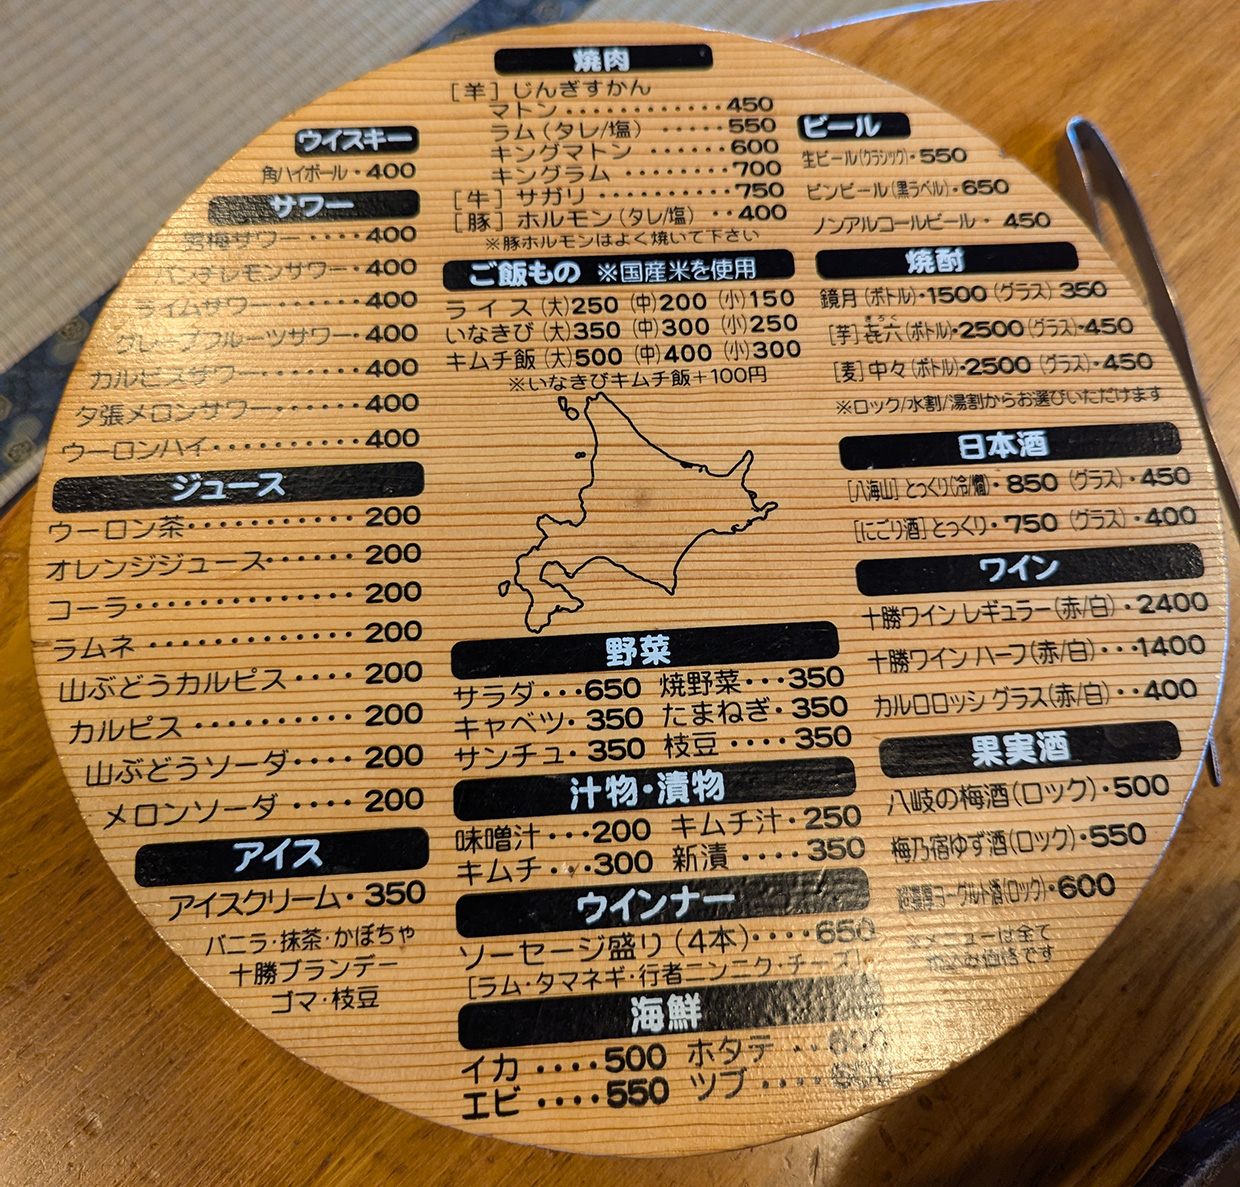 ウイスキー
角ハイボール・400
サワー
サワー・・・・400
パンチレモンサワー・400
ライムサワー・・・・・400
グレープフルーツサワー・400
カルピスサワー・・・・・400
夕張メロンサワー・・・400
ウーロンハイ・・・・・・・・・・400
ジュース
ウーロン茶・・・・・・・・・・・・200
オレンジジュース・・・・・・200
コーラ・・・・・・・・・・・・・・200
ラムネ・・・・・・・・・・・・・200
山ぶどうカルピス・・・・200
カルピス・・・・・・・・・・200
山ぶどうソーダ・・・・200
メロンソーダ・・・・200
アイス
アイスクリーム・350
バニラ・抹茶・かぼちゃ
十勝ブランデー
ゴマ・枝豆
焼肉
[羊] じんぎすかん
マトン・・・・・・・・・・・・450
ラム(タレ/塩)・・・・・550
キングマトン・・・・・・600
キングラム・・・・・・・・700
[牛] サガリ・・・・・・・・・750
[豚] ホルモン(タレ/塩)・・400
※豚ホルモンはよく焼いて下さい
ご飯もの ※国産米を使用
ライス(大)250 (中)200 (小)150
いなきび(大)350 (中)300 (小)250
キムチ飯(大)500 (中)400 (小)300
※いなきびキムチ飯+100円
野菜
サラダ・・・650 焼野菜・・・350
キャベツ・350 たまねぎ・350
サンチュ・350 枝豆・・・・350
汁物・漬物
味噌汁・・・200 キムチ汁・250
キムチ・・・300 新漬・・・・350
ウインナー
ソーセージ盛り(4本)・・・・650
[ラム・タマネギ・行者ニンニク・チーズ]
海鮮
イカ・・・・500 ホタテ・・600
エビ・・・・550 ツブ・・・・
ビール
生ビール(クラシック)・550
ビンビール(黒ラベル)・650
ノンアルコールビール・450
焼酎
鏡月(ボトル)・1500(グラス)350
きろく
[芋]㐂六(ボトル)・2500(グラス)・450
[麦]中々(ボトル)・2500(グラス)・450
※ロック/水割/湯割からお選びいただけます
日本酒
[八海山]とっくり(冷/燗)・850(グラス)・450
[にごり酒]とっくり・750(グラス)・400
ワイン
十勝ワイン レギュラー(赤/白)・2400
十勝ワイン ハーフ(赤/白)・・・1400
カルロロッシ グラス(赤/白)・・400
果実酒
八岐の梅酒(ロック)・500
梅乃宿ゆず酒(ロック)・550
超濃厚ヨーグルト酒(ロック)・600
※メニューは全て
税込み価格です